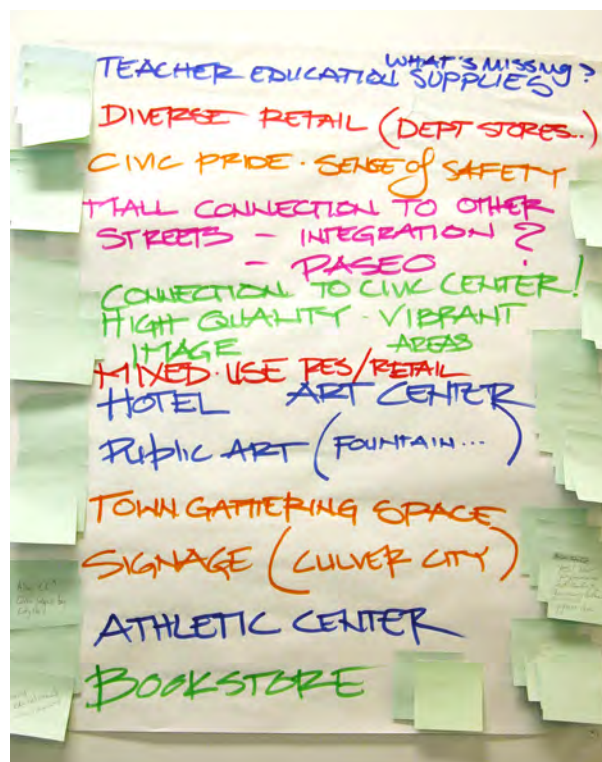 WHAT'S MISSING?
TEACHER EDUCATION SUPPLIES
DIVERSE RETAIL (DEPT STORES..)
CIVIC PRIDE · SENSE of SAFETY
MALL CONNECTION TO OTHER
STREETS – INTEGRATION ?
– PASEO
CONNECTION TO CIVIC CENTER!
HIGH QUALITY · VIBRANT
IMAGE AREAS
MIXED·USE RES/RETAIL
HOTEL ART CENTER
PUBLIC ART (FOUNTAIN...)
TOWN GATHERING SPACE
SIGNAGE (CULVER CITY)
ATHLETIC CENTER
BOOKSTORE